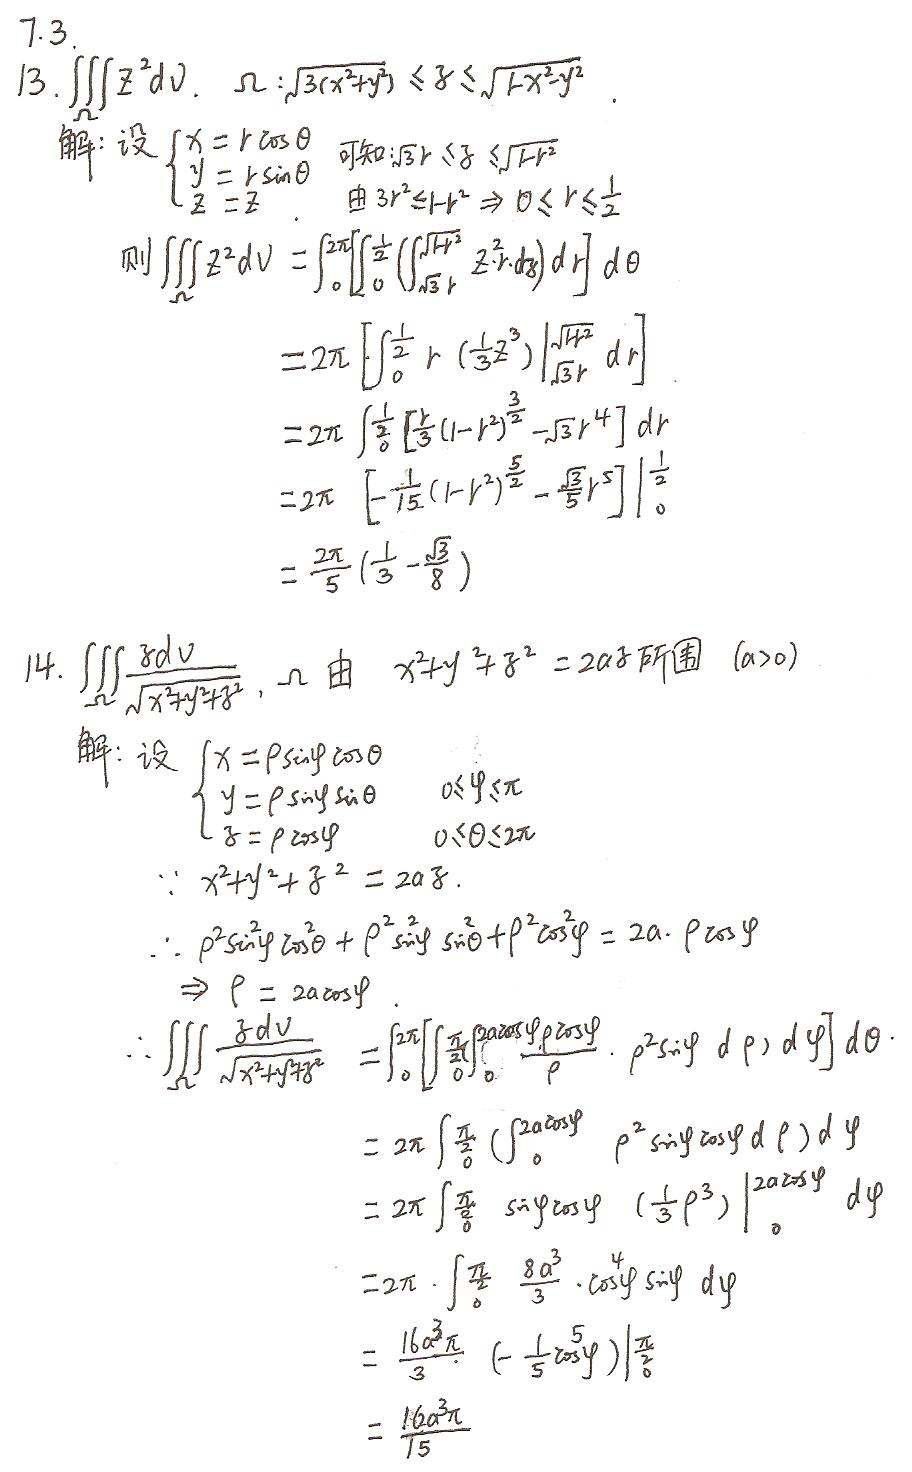 7.3.
13. ∭_Ω z²dv. Ω: √(3(x²+y²)) ≤ z ≤ √(1-x²-y²).
解: 设 { x = r cosθ 可知: √3 r ≤ z ≤ √(1-r²)
y = r sinθ
z = z. 由 3r² ≤ 1-r² ⇒ 0 ≤ r ≤ 1/2
则 ∭_Ω z²dv = ∫_0^{2π} [∫_0^{1/2} (∫_{√3 r}^{√(1-r²)} z²·r·dz) dr] dθ
= 2π [∫_0^{1/2} r (1/3 z³) |_{√3 r}^{√(1-r²)} dr]
= 2π ∫_0^{1/2} [r/3 (1-r²)^{3/2} - √3 r⁴] dr
= 2π [-1/15 (1-r²)^{5/2} - √3/5 r⁵] |_0^{1/2}
= 2π/5 (1/3 - √3/8)
14. ∭_Ω zdv/√(x²+y²+z²), Ω 由 x²+y²+z² = 2az 所围 (a>0)
解: 设 { x = ρsinφcosθ
y = ρsinφsinθ 0≤φ≤π
z = ρcosφ 0≤θ≤2π
∵ x²+y²+z² = 2az.
∴ ρ²sin²φcos²θ + ρ²sin²φsin²θ + ρ²cos²φ = 2a·ρcosφ
⇒ ρ = 2acosφ.
∴ ∭_Ω zdv/√(x²+y²+z²) = ∫_0^{2π} [∫_0^{π/2} (∫_0^{2acosφ} ρcosφ/ρ · ρ²sinφ dρ) dφ] dθ.
= 2π ∫_0^{π/2} (∫_0^{2acosφ} ρ²sinφcosφdρ) dφ
= 2π ∫_0^{π/2} sinφcosφ (1/3 ρ³) |_0^{2acosφ} dφ
= 2π · ∫_0^{π/2} 8a³/3 · cos⁴φ sinφ dφ
= 16a³π/3 (-1/5 cos⁵φ) |_0^{π/2}
= 16a³π/15